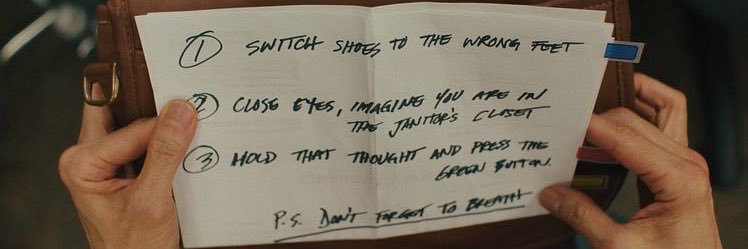 1 SWITCH SHOES TO THE WRONG FEET
2 CLOSE EYES, IMAGINE YOU ARE IN
THE JANITOR'S CLOSET
3 HOLD THAT THOUGHT AND PRESS THE
GREEN BUTTON.
P.S. DON'T FORGET TO BREATH